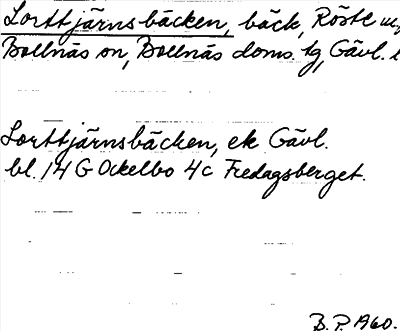 Lorttjärnsbäcken, bäck, Röste
Bollnäs sn, Bollnäs doms. tg, Gävl.
Lorttjärnsbäcken, ek Gävl.
bl. 14 G Ockelbo 4c Fredagsberget.
B. P. 1960.